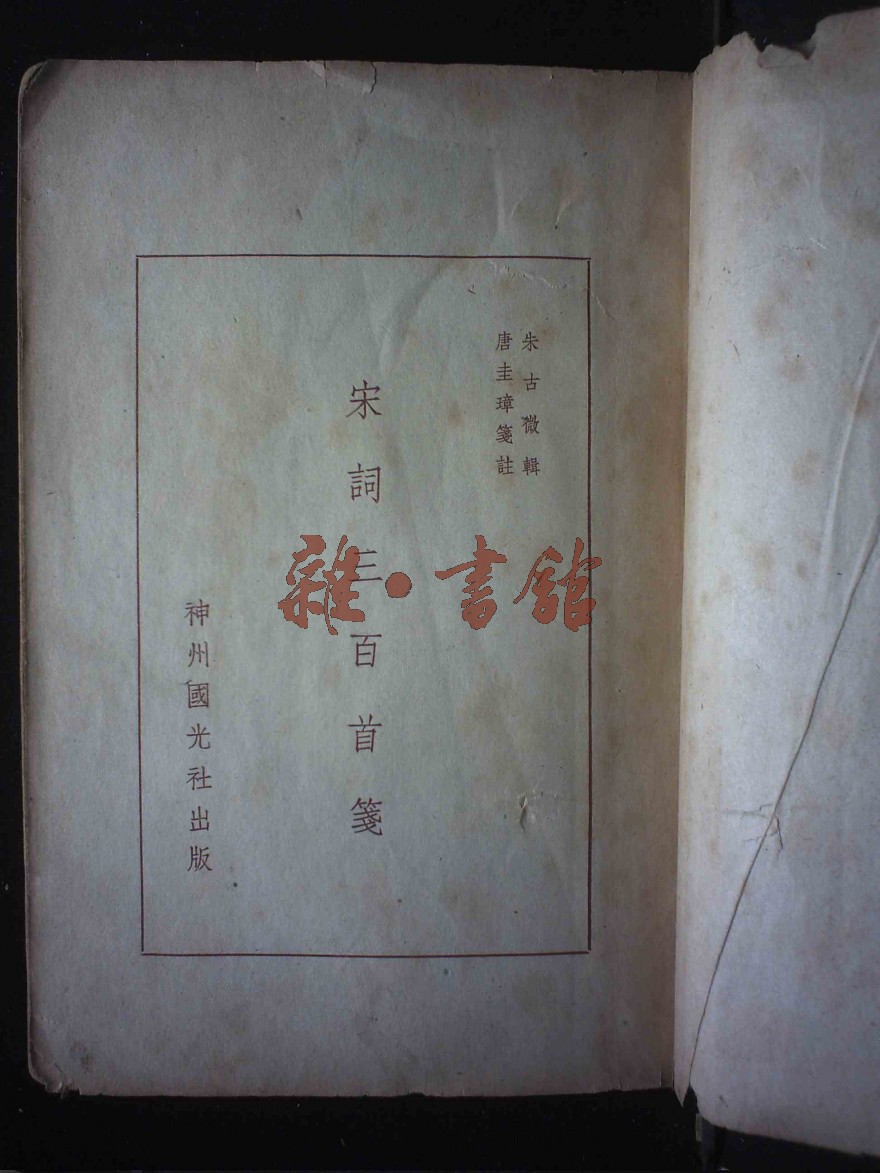 朱古微輯
唐圭璋箋註
宋詞三百首箋
神州國光社出版
雜·書館